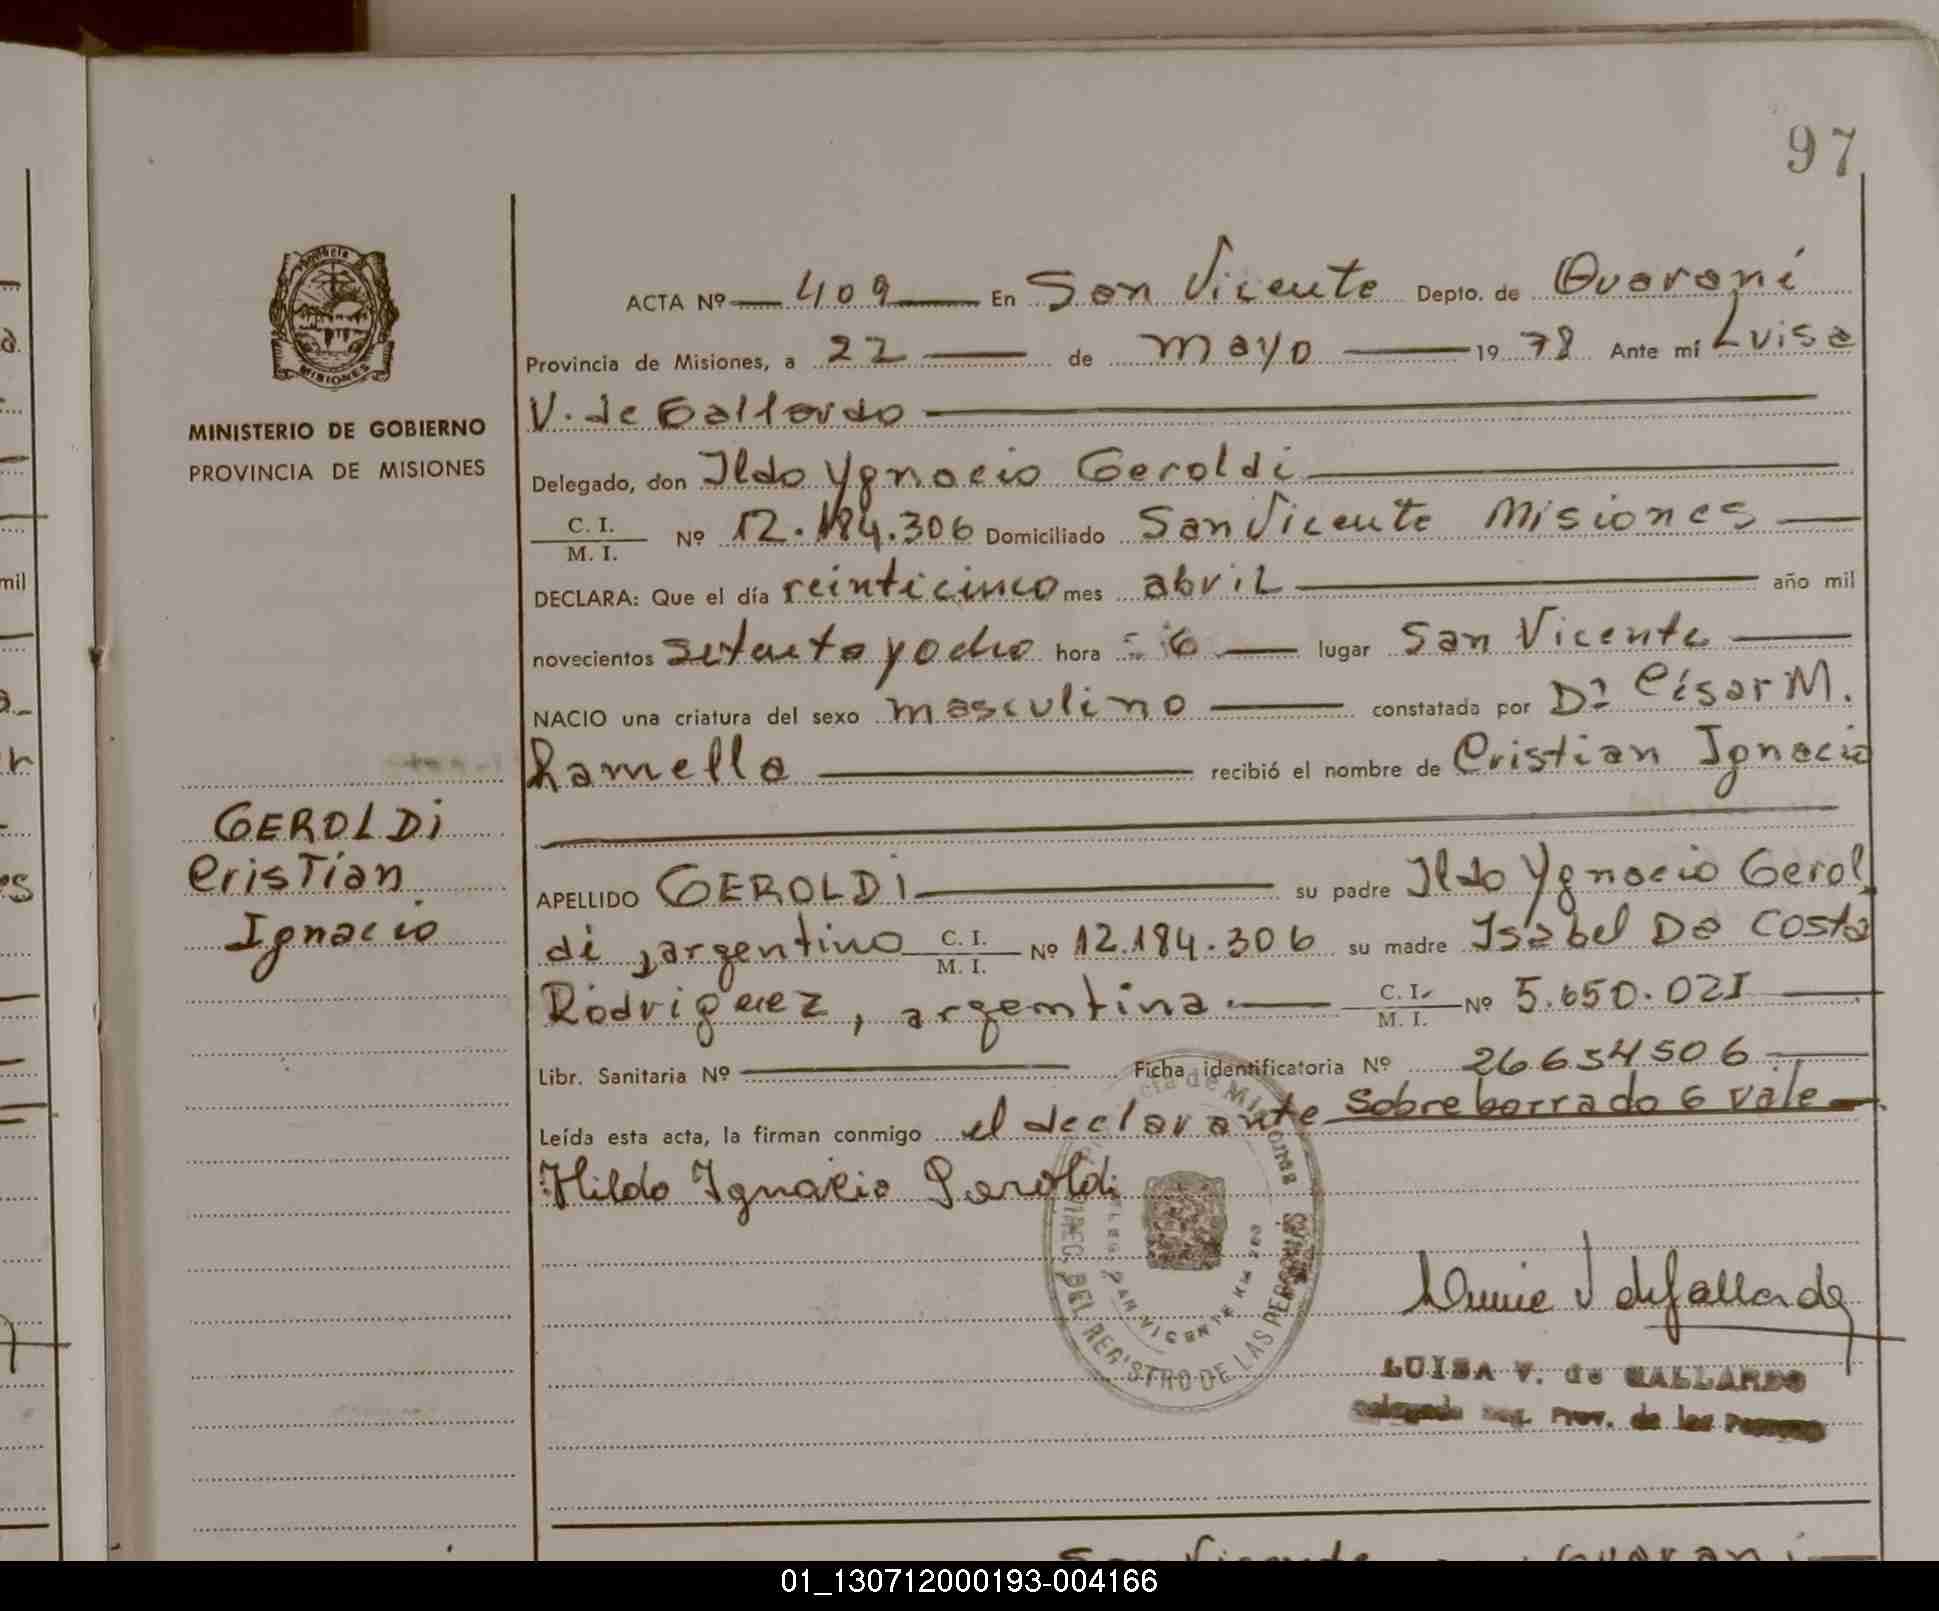 97
ACTA Nº 409 En San Vicente Depto. de Guaraní
Provincia de Misiones, a 22 de mayo 19 78 Ante mí Luisa
V. de Gallardo
MINISTERIO DE GOBIERNO
PROVINCIA DE MISIONES
Delegado, don Ildo Ygnacio Geroldi
C. I.
M. I. Nº 12.184.306 Domiciliado San Vicente Misiones
DECLARA: Que el día veinticinco mes abril año mil
novecientos setenta y ocho hora 6 lugar San Vicente
NACIO una criatura del sexo masculino constatada por Dr César M.
Ramella recibió el nombre de Cristian Ignacio
GEROLDi
Cristian
Ignacio
APELLIDO GEROLDI su padre Ildo Ygnacio Gerol
di, argentino C. I. M. I. Nº 12.184.306 su madre Isabel Da Costa
Rodriguez, argentina. C. I. M. I. Nº 5.650.021
Libr. Sanitaria Nº Ficha identificatoria Nº 26654506
Leída esta acta, la firman conmigo el declarante sobre borrado 6 vale
Hildo Ignacio Geroldi
DEL REGISTRO DE LAS PERSONAS
SAN VICENTE
LUISA V. de GALLARDO
Prov. de las
San Vicente Guaraní
01_130712000193-004166